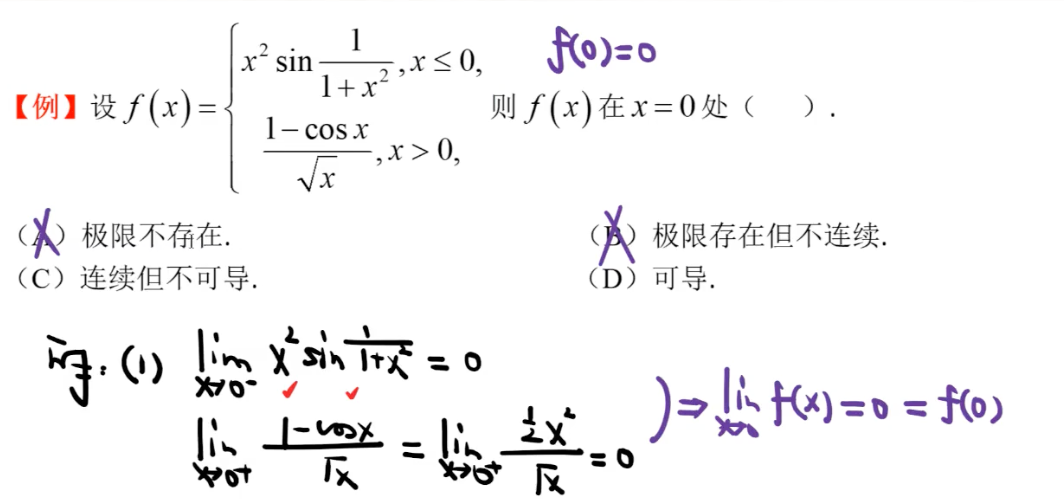 【例】设 f(x) = { x² sin 1/(1+x²), x ≤ 0, (1−cos x)/√x, x > 0, 则 f(x) 在 x = 0 处（  ）. f(0)=0
（A）极限不存在. （B）极限存在但不连续.
（C）连续但不可导. （D）可导.
(1) lim x→0⁻ x² sin 1/(1+x²) = 0
lim x→0⁺ (1−cosx)/√x = lim x→0⁺ (½x²)/√x = 0 ) ⇒ lim x→0 f(x) = 0 = f(0)